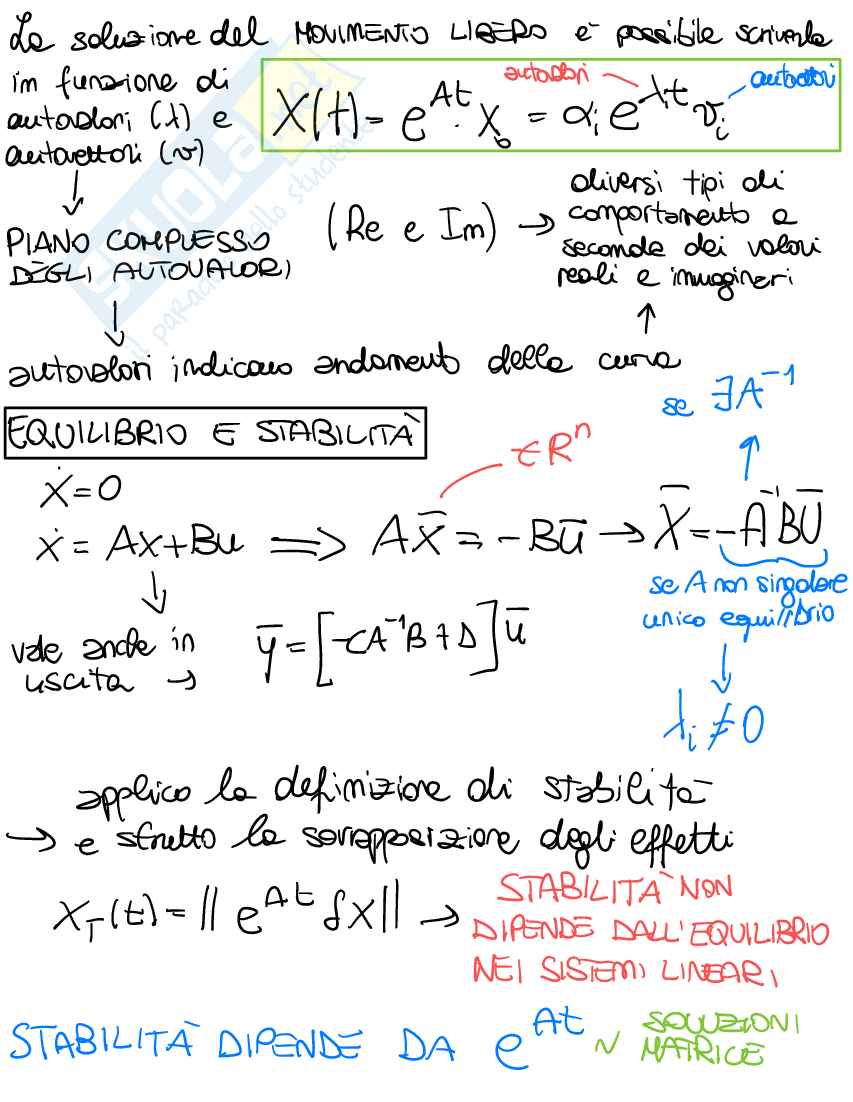 La soluzione del MOVIMENTO LIBERO è possibile scriverla
in funzione di
autovalori (λ) e
autovettori (v)
autovalori
autovettori
X(t) = e^{At} · X_0 = α_i e^{λt} v_i
PIANO COMPLESSO
DEGLI AUTOVALORI
(Re e Im) →
diversi tipi di
comportamento a
seconda dei valori
reali e immaginari
autovalori indicano andamento della curva
EQUILIBRIO E STABILITÀ
se ∃A^{-1}
∈ R^n
ẋ = 0
ẋ = Ax + Bu ⟹ A x̄ = -B ū → x̄ = -A^{-1} B Ū
se A non singolare
unico equilibrio
vale anche in
uscita →
ȳ = [-CA^{-1}B + D] ū
λ_i ≠ 0
applico la definizione di stabilità
→ e sfrutto la sovrapposizione degli effetti
X_T(t) = || e^{At} δX || →
STABILITÀ NON
DIPENDE DALL'EQUILIBRIO
NEI SISTEMI LINEARI
STABILITÀ DIPENDE DA e^{At} ~
SOLUZIONI
MATRICE